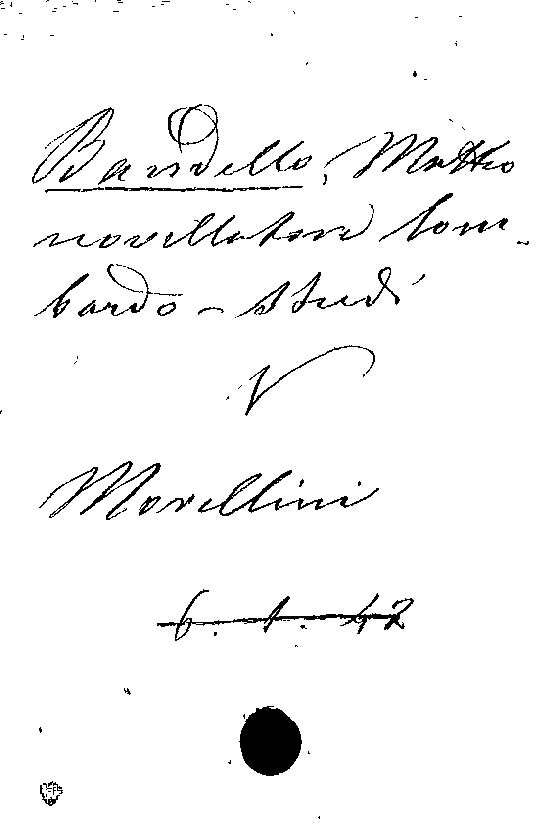 Bandello, Matteo
novellatore lom-
bardo - studi
V
Morellini
6. 1. 42